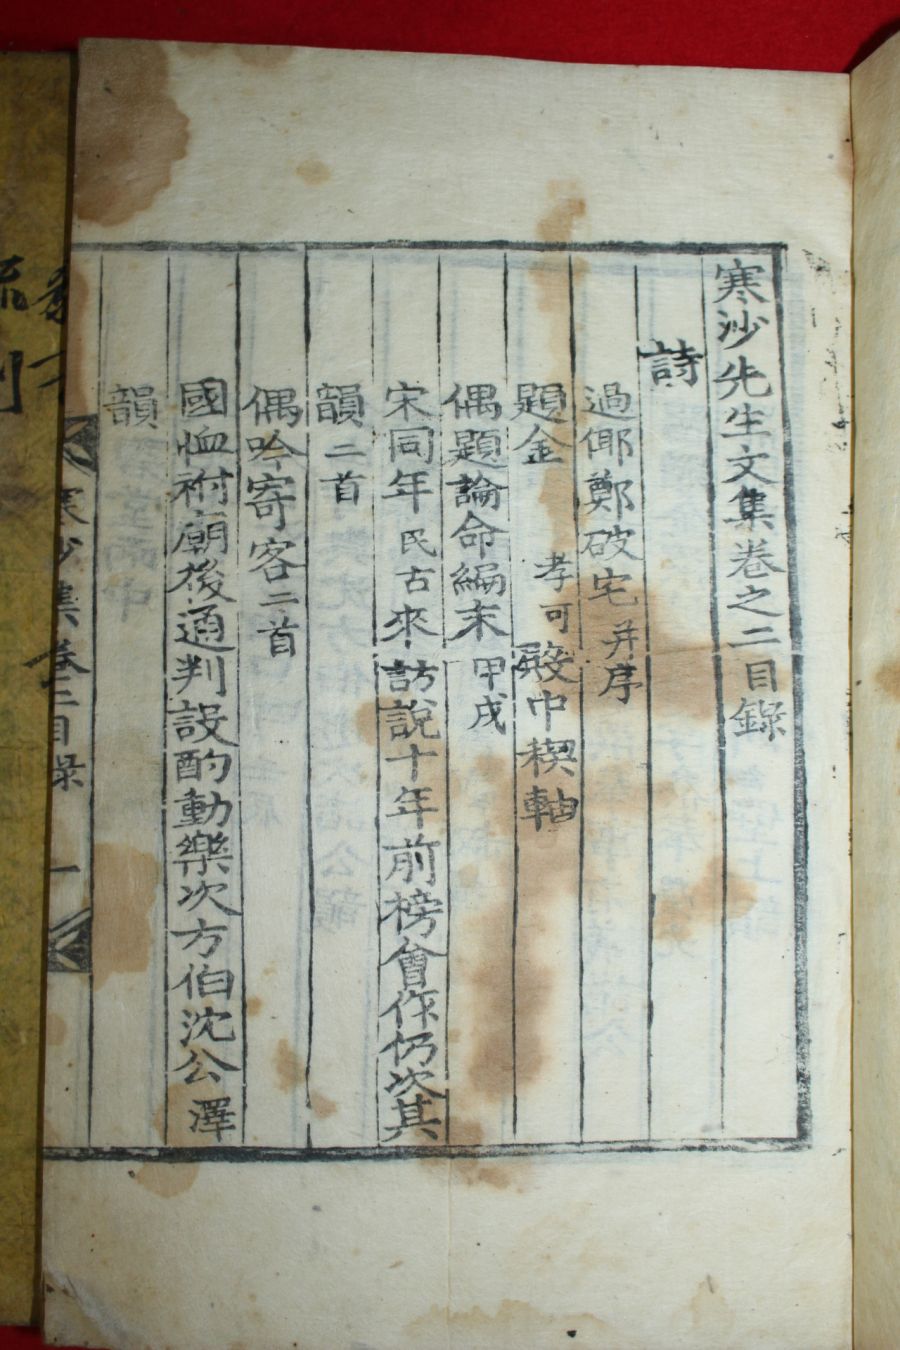 寒沙先生文集卷之二目錄
詩
過鄭破宅 并序
題金 孝可 殿中稧軸
偶題論命編末 甲戌
宋同年 民古 來訪說十年前榜會作仍次其
韻 二首
偶吟寄客 二首
國恤祔廟後通判設酌動樂次方伯沈公 澤
韻
寒沙集卷二目錄 一